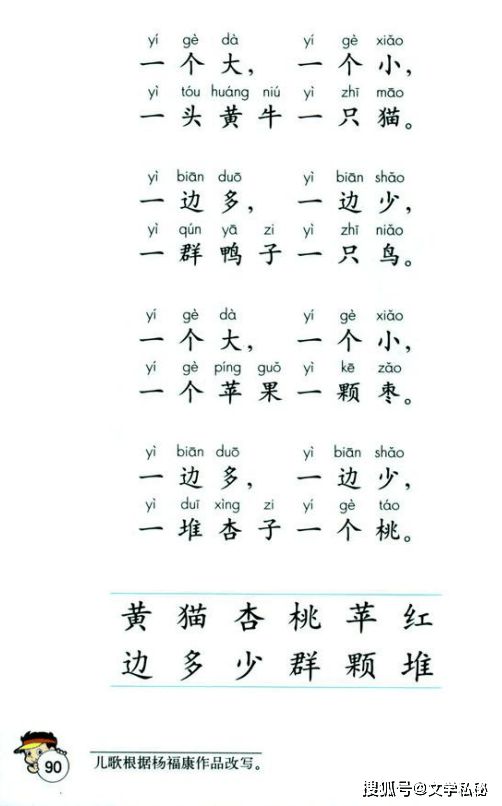 yí gè dà yí gè xiǎo
一个大， 一个小，
yì tóu huáng niú yì zhī māo
一头黄牛一只猫。
yì biān duō yì biān shǎo
一边多， 一边少，
yì qún yā zi yì zhī niǎo
一群鸭子一只鸟。
yí gè dà yí gè xiǎo
一个大， 一个小，
yí gè píng guǒ yì kē zǎo
一个苹果一颗枣。
yì biān duō yì biān shǎo
一边多， 一边少，
yì duī xìng zi yí gè táo
一堆杏子一个桃。
黄猫杏桃苹红
边多少群颗堆
90
儿歌根据杨福康作品改写。
搜狐号@文学私秘